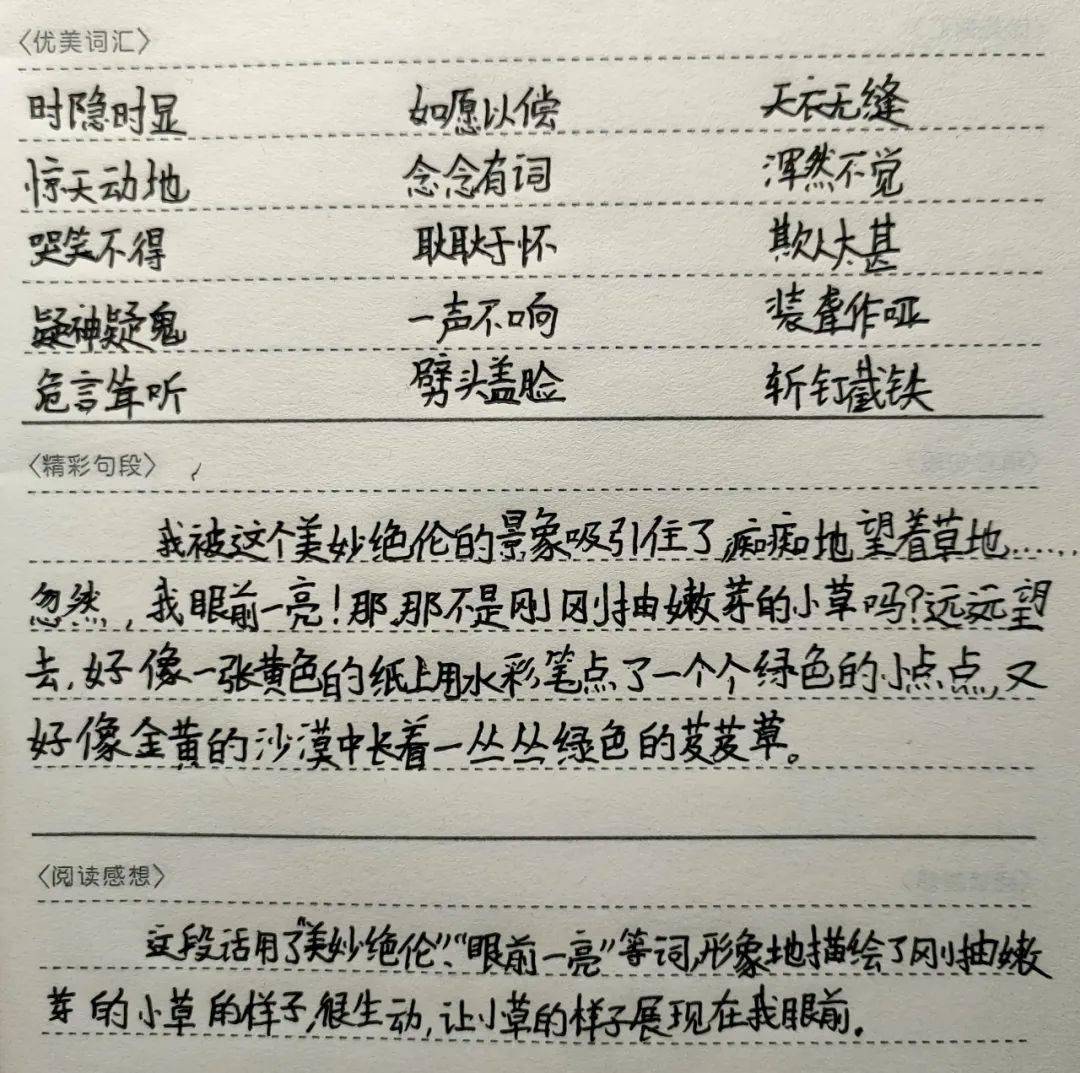 〈优美词汇〉
时隐时显 如愿以偿 天衣无缝
惊天动地 念念有词 浑然不觉
哭笑不得 耿耿于怀 欺人太甚
疑神疑鬼 一声不响 装聋作哑
危言耸听 劈头盖脸 斩钉截铁
〈精彩句段〉
我被这个美妙绝伦的景象吸引住了,痴痴地望着草地……
忽然,我眼前一亮!那,那不是刚刚抽嫩芽的小草吗?远远望
去,好像一张黄色的纸上用水彩笔点了一个个绿色的小点点,又
好像金黄的沙漠中长着一丛丛绿色的芨芨草。
〈阅读感想〉
这段话用了“美妙绝伦”、“眼前一亮”等词,形象地描绘了刚抽嫩
芽的小草的样子,很生动,让小草的样子展现在我眼前.